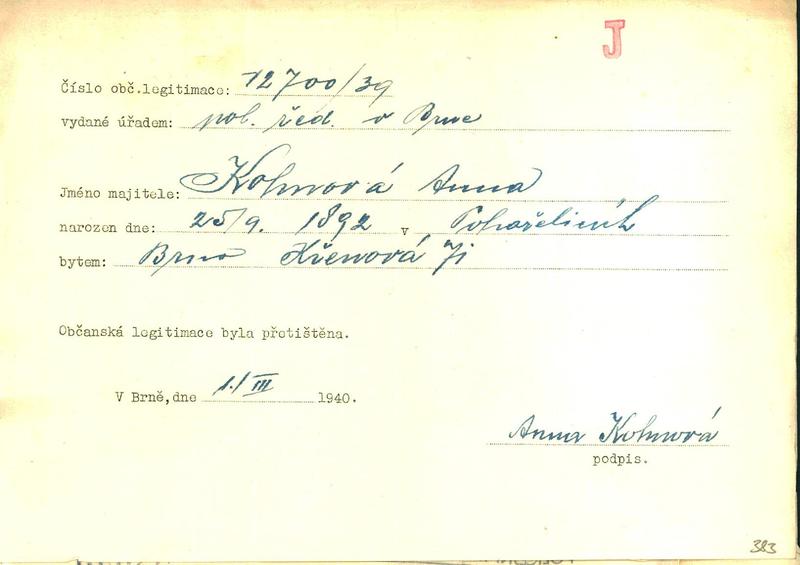 J
Číslo obč.legitimace: 12700/39
vydané úřadem: pol. řed. v Brně
Jméno majitele: Kohnová Anna
narozen dne: 25/9. 1892 v Pohořelicích
bytem: Brno Křenová
Občanská legitimace byla přetištěna.
V Brně,dne 1./III 1940.
Anna Kohnová
podpis.
383